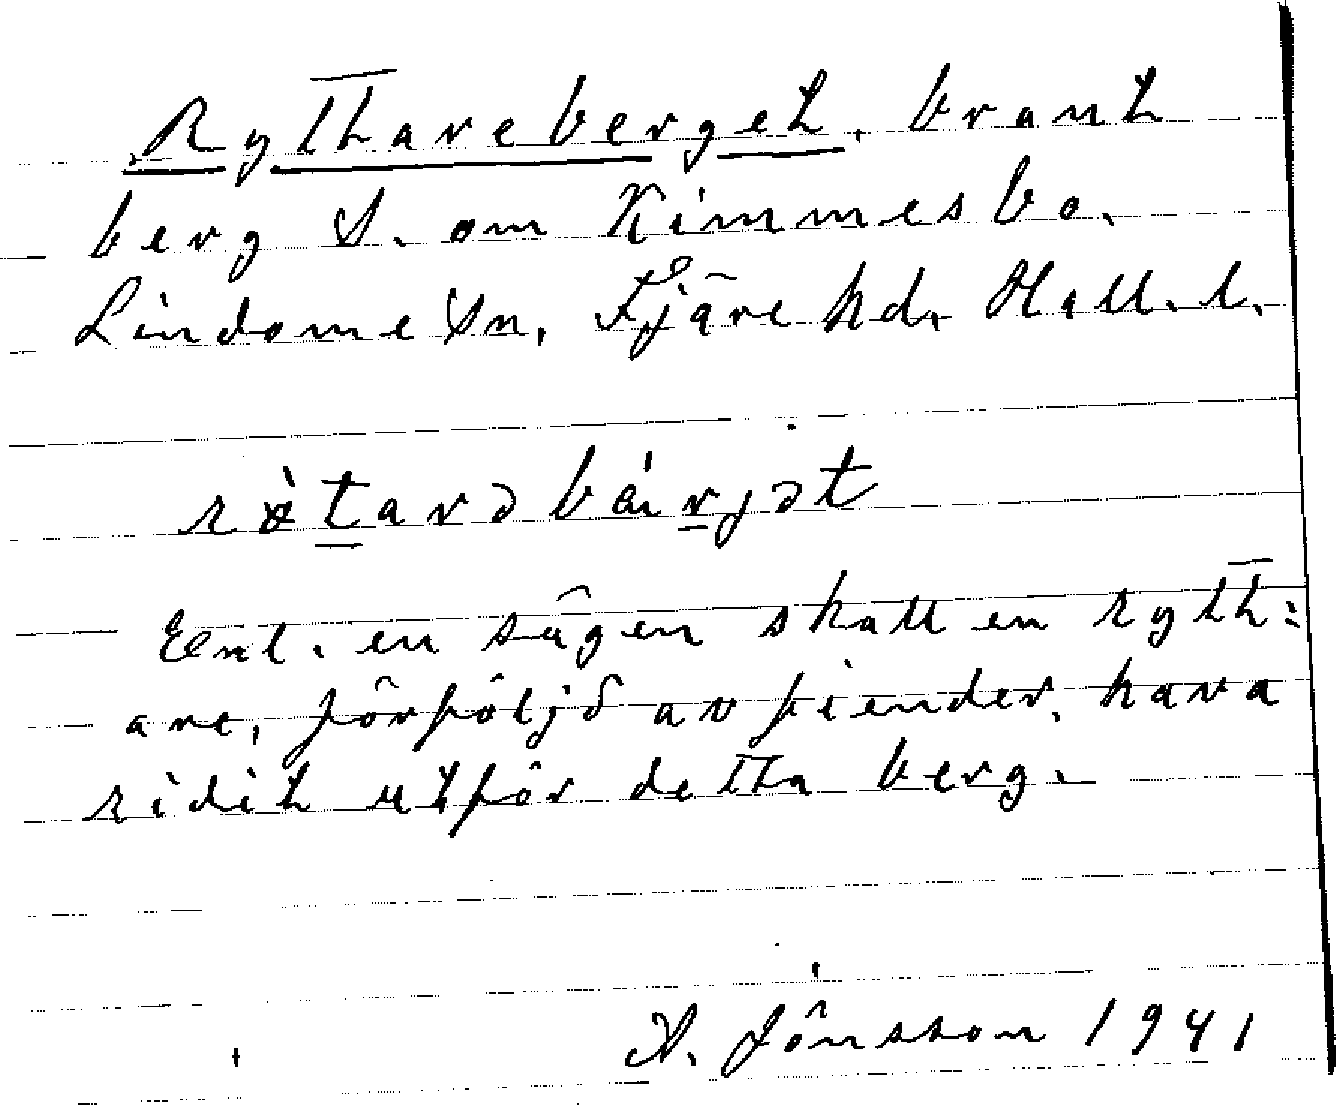 Ryttareberget, brant
berg S. om Kimmesbo.
Lindome Sn, Fjäre hd. Hall. l.
Enl. en sägen skall en rytt-
are, förföljd av fiender, hava
ridit utför detta berg.
A. Jönsson 1941